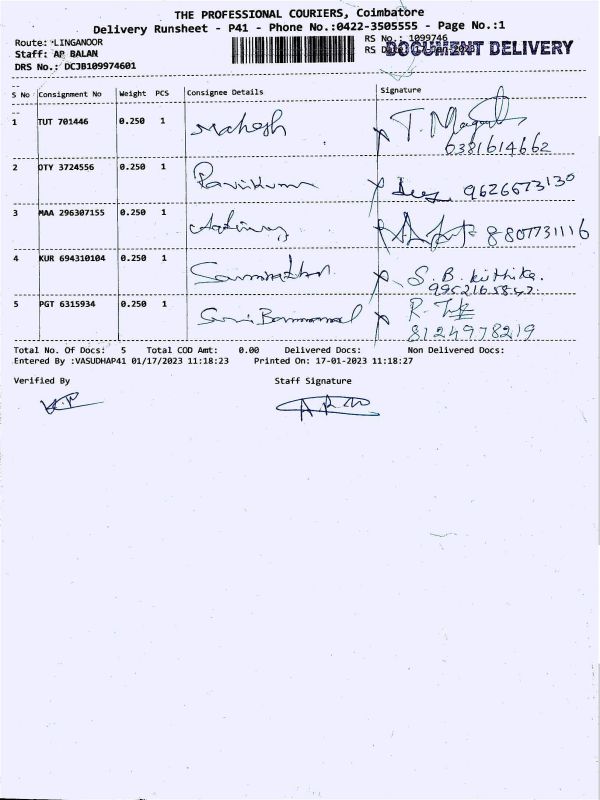 THE PROFESSIONAL COURIERS, Coimbatore
Delivery Runsheet - P41 - Phone No.:0422-3505555 - Page No.:1
Route: LINGANOOR
RS No.: 1099746
Staff: AP BALAN
RS Date: 17-Jan-2023
DOCUMENT DELIVERY
DRS No.: DCJB109974601
S No Consignment No Weight PCS Consignee Details Signature
1 TUT 701446 0.250 1 Mahesh
6381614662
2 OTY 3724556 0.250 1 9626673130
3 MAA 296307155 0.250 1 8807731116
4 KUR 694310104 0.250 1 S. B. kirthika.
5 PGT 6315934 0.250 1
8124978219
Total No. Of Docs: 5 Total COD Amt: 0.00 Delivered Docs: Non Delivered Docs:
Entered By :VASUDHAP41 01/17/2023 11:18:23 Printed On: 17-01-2023 11:18:27
Verified By Staff Signature